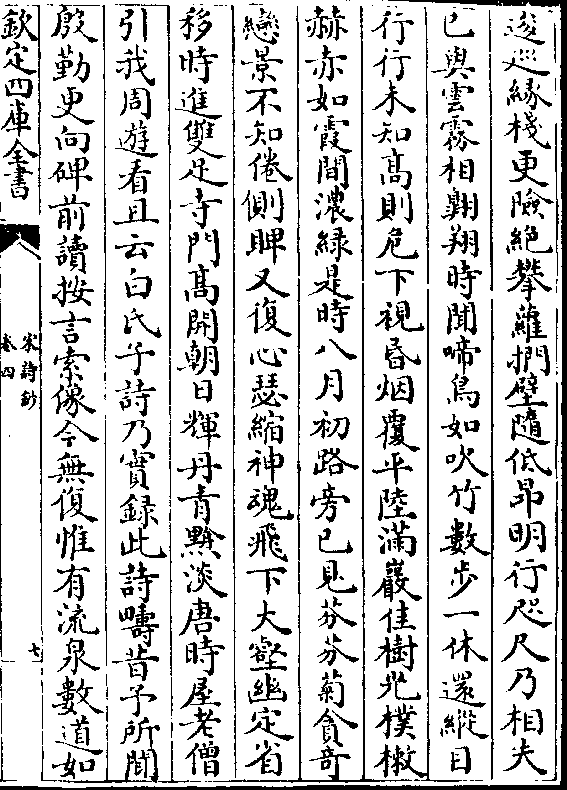 逡巡緣棧更險絶攀蘿捫壁隨低昂明行咫尺乃相失
已與雲霧相翺翔時聞啼鳥如吹竹數歩一休還縱目
行行未知髙則危下視昏烟覆平陸滿巖佳樹光樸樕
赫赤如霞間濃緑是時八月初路旁已見芬芬菊貪竒
戀景不知倦側睥又復心瑟縮神魂飛下大壑幽定省
移時進雙足寺門髙開朝日輝丹青黲淡唐時屋老僧
引我周遊看且云白氏子詩乃實録此詩疇昔予所聞
殷勤更向碑前讀按言索像今無復惟有流泉數道如
欽定四庫全書
宋詩鈔
卷四
七